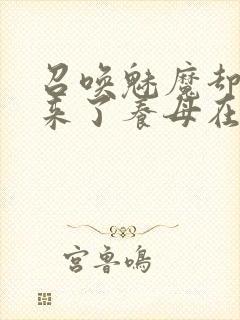 召唤魅魔却
来了养母在
宫鲁鸣